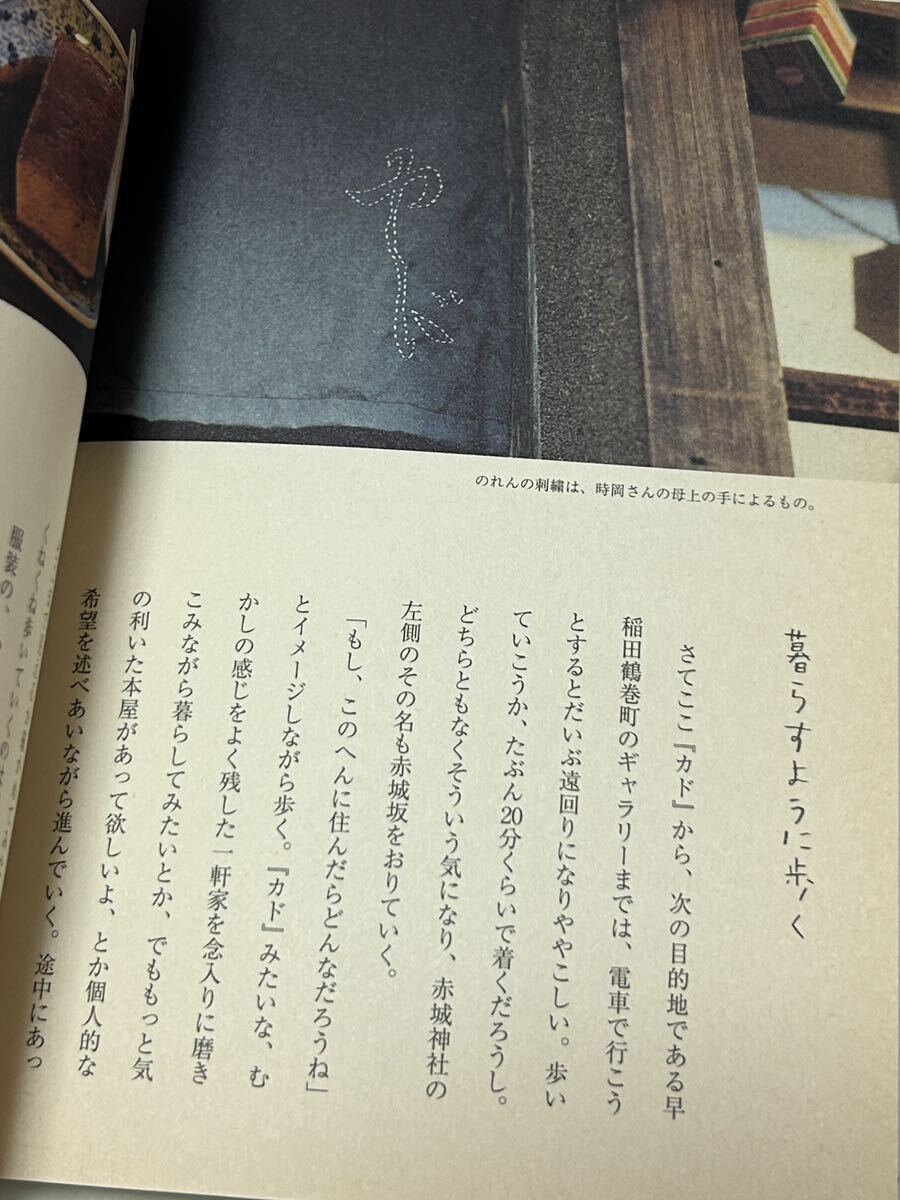 かド
のれんの刺繍は、時岡さんの母上の手によるもの。
暮らすように歩く
さてここ『カド』から、次の目的地である早
稲田鶴巻町のギャラリーまでは、電車で行こう
とするとだいぶ遠回りになりややこしい。歩い
ていこうか、たぶん20分くらいで着くだろうし。
どちらともなくそういう気になり、赤城神社の
左側のその名も赤城坂をおりていく。
「もし、このへんに住んだらどんなだろうね」
とイメージしながら歩く。『カド』みたいな、む
かしの感じをよく残した一軒家を念入りに磨き
こみながら暮らしてみたいとか、でももっと気
の利いた本屋があって欲しいよ、とか個人的な
希望を述べあいながら進んでいく。途中にあっ
くねくね歩いていくのは
服装の、